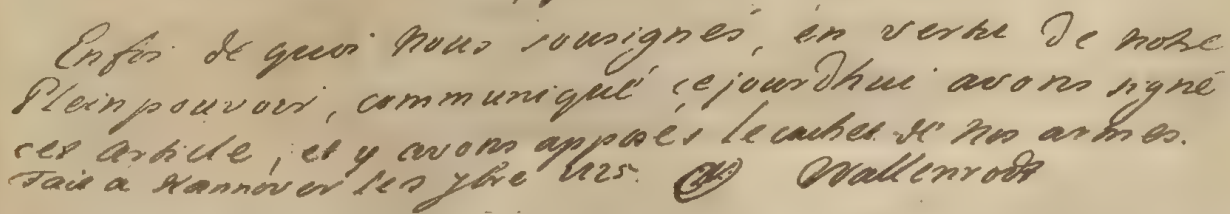 Enfoi de quoi Nous sousignés, en vertu de notre
Pleinpouvoir, communiqué cejourdhui avons signé
cet article, et y avons apposés le cachet de nos armes.
Fait a Hannover le 3 7bre 1725. (LS) Wallenrodt